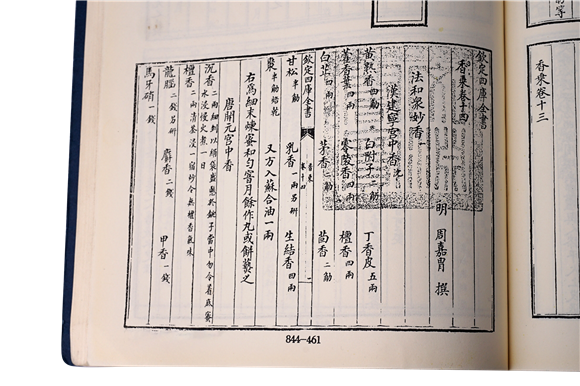 欽定四庫全書
香乘卷十四
明 周嘉胄 撰
法和衆妙香一
漢建寧宮中香 沈
黄熟香四觔 白附子二觔 丁香皮五兩
藿香葉四兩 零陵香四兩 檀香四兩
白芷四兩 茅香二觔 茴香二觔
甘松半觔 乳香一兩另研 生結香四兩
棗半觔焙乾 又方入蘇合油一兩
右為細末煉蜜和勻窨月餘作丸或餅爇之
唐開元宮中香
沉香二兩細剉以絹袋盛懸於銚子當中勿令着底蜜
水浸慢火煮一日
檀香二兩清茶浸一宿炒令無檀香氣味
龍腦二錢另研 麝香二錢 甲香一錢
馬牙硝一錢
欽定四庫全書
香乘
卷十四
一
香乘卷十三
844-461